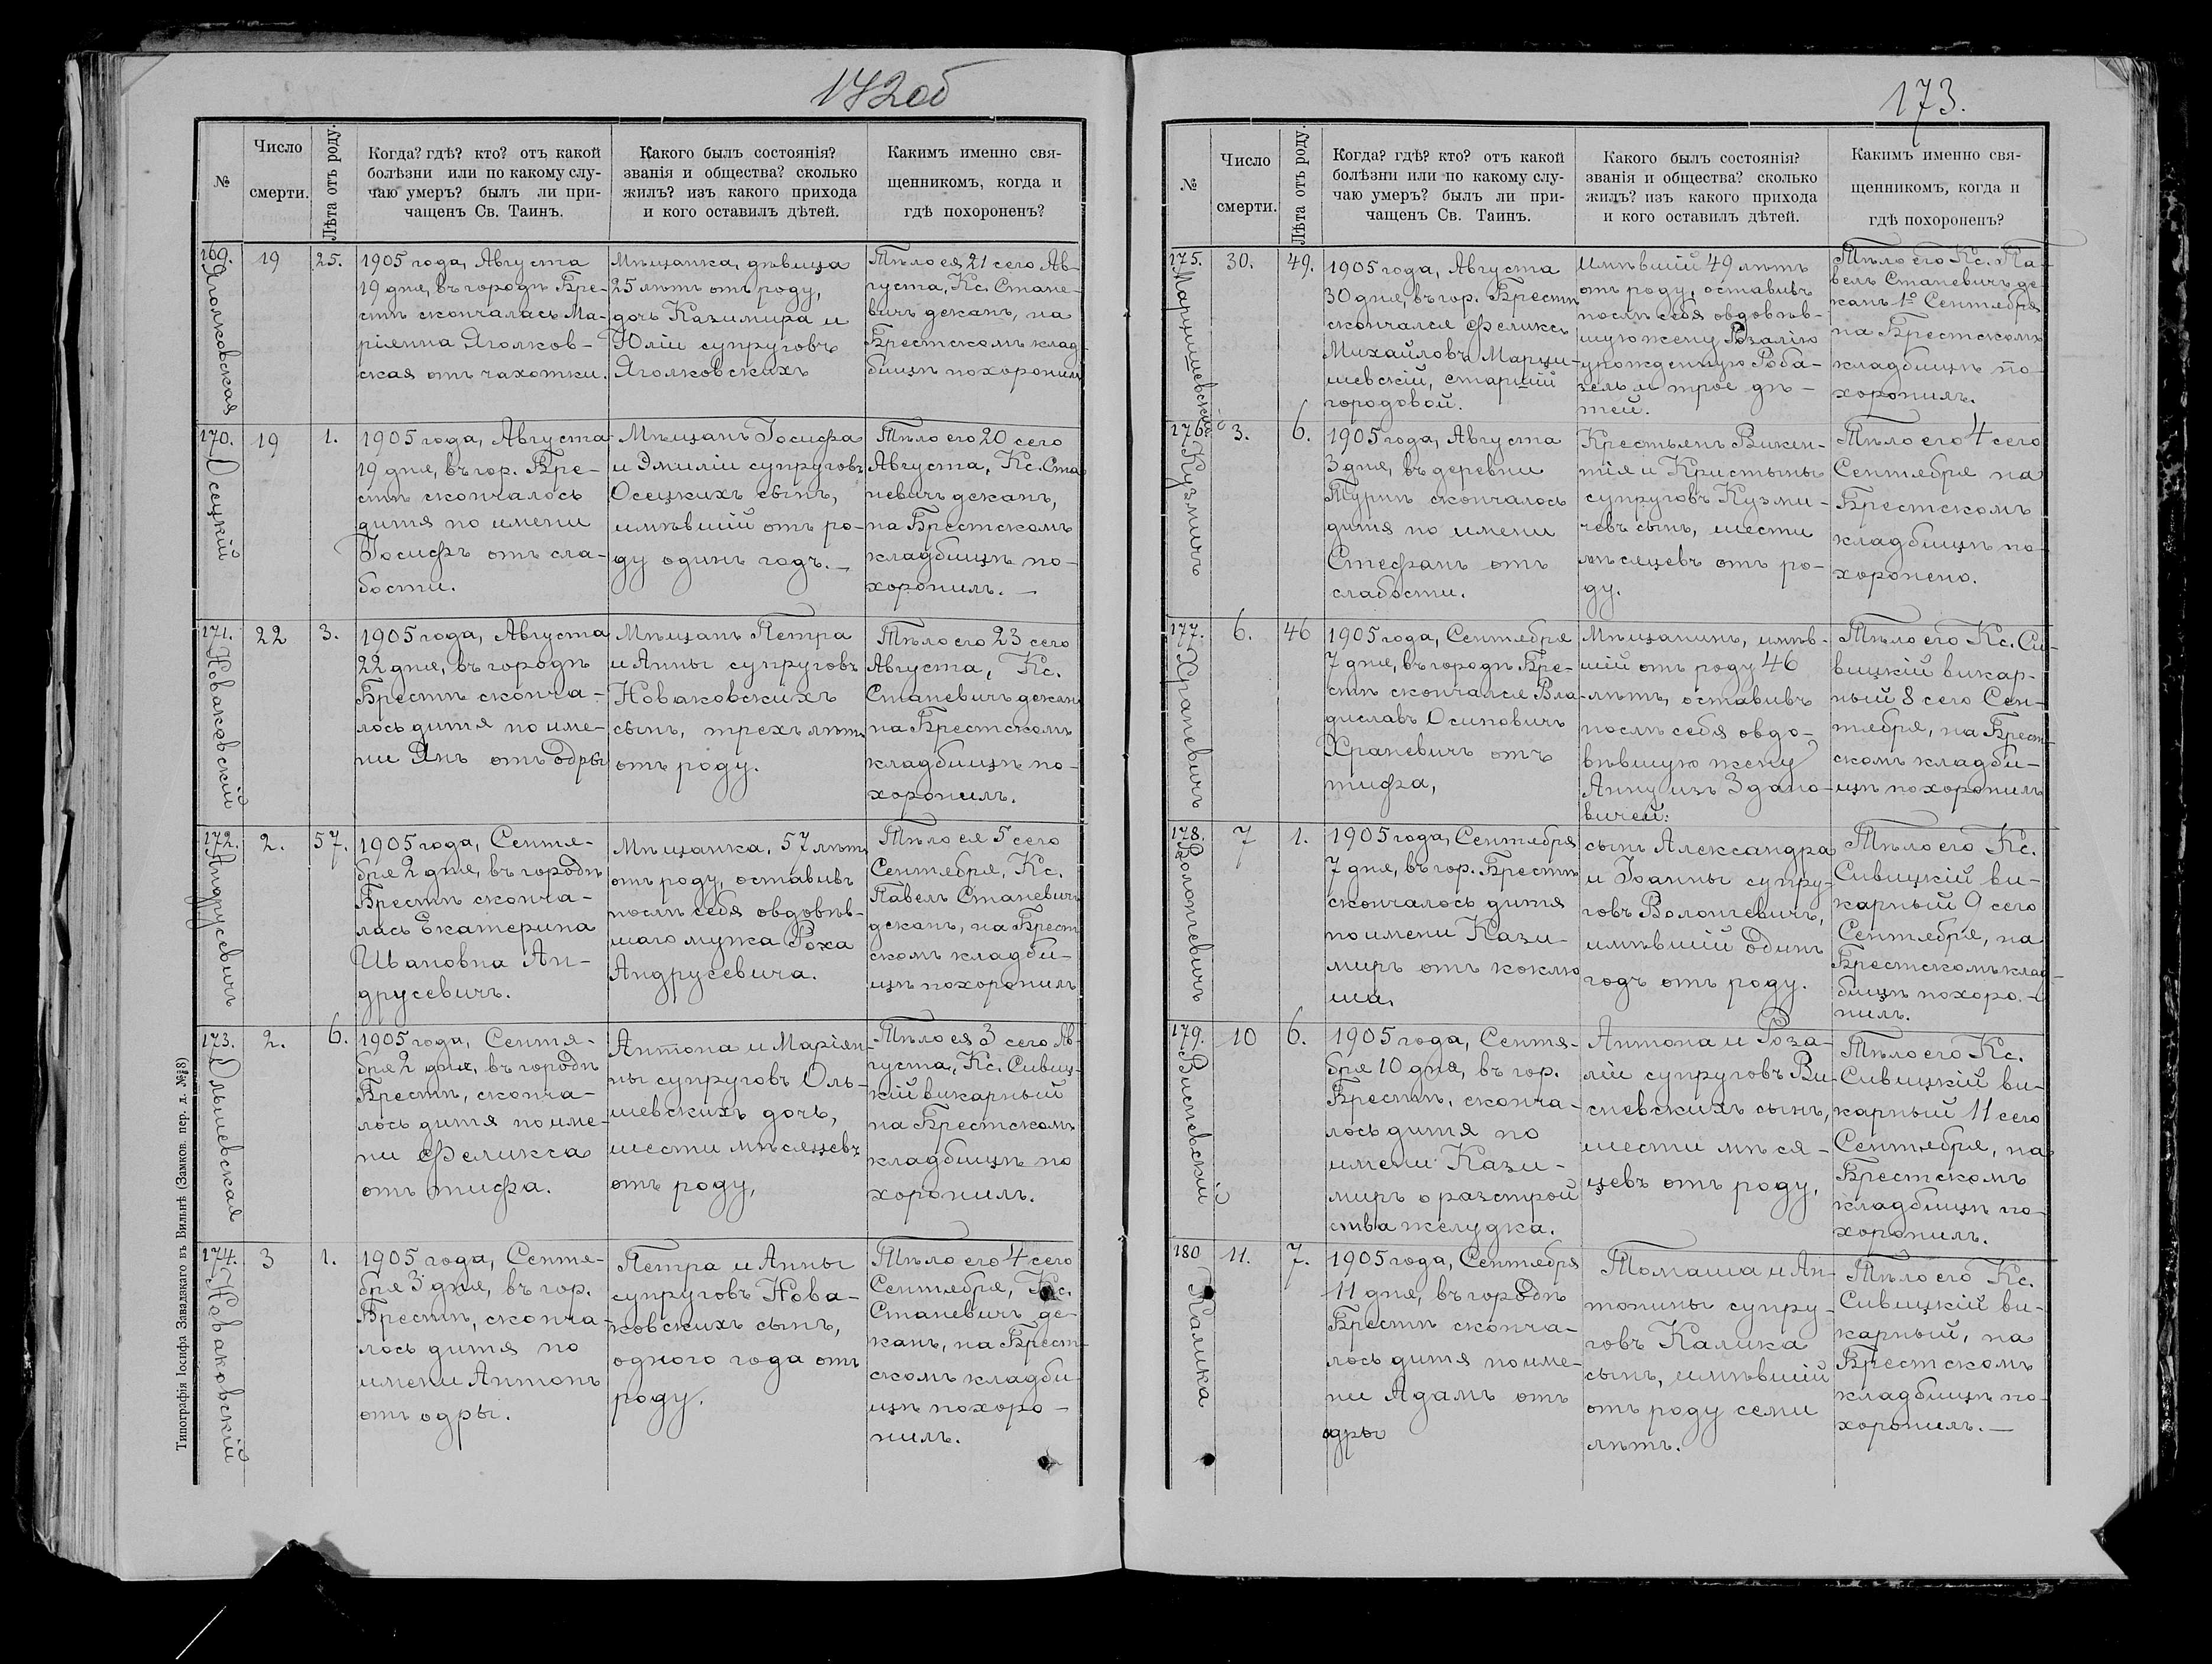 172об
№
Число
смерти.
Лѣта отъ роду.
Когда? гдѣ? кто? отъ какой
болѣзни или по какому слу-
чаю умеръ? былъ ли при-
чащенъ Св. Таинъ.
Какого былъ состоянія?
званія и общества? сколько
жилъ? изъ какого прихода
и кого оставилъ дѣтей.
Какимъ именно свя-
щенникомъ, когда и
гдѣ похороненъ?
169.
Яголковская
19
25.
1905 года, Августа
19 дня, въ городѣ Бре-
стѣ скончалась Ма-
ріянна Яголков-
ская отъ чахотки.
Мѣщанка, дѣвица
25 лѣтъ отъ роду,
дочь Казимира и
Юліи супруговъ
Яголковскихъ
Тѣло ея 21 сего Ав-
густа, Кс. Стане-
вичъ деканъ, на
Брестскомъ клад-
бищѣ похоронилъ
170.
Осецкій
19
1.
1905 года, Августа
19 дня, въ гор. Бре-
стѣ скончалось
дитя по имени
Іосифъ отъ сла-
бости.
Мѣщанъ Іосифа
и Эмиліи супруговъ
Осецкихъ сынъ,
имѣвшій отъ ро-
ду одинъ годъ. —
Тѣло его 20 сего
Августа, Кс. Ста
невичъ деканъ,
на Брестскомъ
кладбищѣ по-
хоронилъ. —
171.
Новаковскій
22
3.
1905 года, Августа
22 дня, въ городѣ
Брестѣ сконча-
лось дитя по име-
ни Янъ отъ одры
Мѣщанъ Петра
и Анны супруговъ
Новаковскихъ
сынъ, трехъ лѣтъ
отъ роду.
Тѣло его 23 сего
Августа, Кс.
Станевичъ деканъ
на Брестскомъ
кладбищѣ по-
хоронилъ.
172.
Андрусевичъ
2.
57.
1905 года, Сентя-
бря 2 дня, въ городѣ
Брестѣ сконча-
лась Екатерина
Ивановна Ан-
друсевичъ.
Мѣщанка, 57 лѣтъ
отъ роду, оставивъ
послѣ себя овдовѣв-
шаго мужа Роха
Андрусевича.
Тѣло ея 5 сего
Сентября, Кс.
Павелъ Станевичъ
деканъ, на Брест
скомъ кладби-
щѣ похоронилъ
173.
Ольшевская
2.
6.
1905 года, Сентя-
бря 2 дня, въ городѣ
Брестѣ, сконча-
лось дитя по име-
ни Феликса
отъ тифа.
Антона и Маріян-
ны супруговъ Оль-
шевскихъ дочь,
шести мѣсяцевъ
отъ роду,
Тѣло ея 3 сего Ав-
густа, Кс. Сивиц-
кій викарный
на Брестскомъ
кладбищѣ по
хоронилъ.
174.
Новаковскій
3
1.
1905 года, Сентя-
бря 3 дня, въ гор.
Брестѣ, сконча-
лось дитя по
имени Антонъ
отъ одры.
Петра и Анны
супруговъ Нова-
ковскихъ сынъ,
одного года отъ
роду.
Тѣло его 4 сего
Сентября, Кс.
Станевичъ де-
канъ, на Брест-
скомъ кладби-
щѣ похоро-
нилъ.
Типографія Іосифа Завадзкаго въ Вильнѣ (Замков. пер. д. №
173.
№
Число
смерти.
Лѣта отъ роду.
Когда? гдѣ? кто? отъ какой
болѣзни или по какому слу-
чаю умеръ? былъ ли при-
чащенъ Св. Таинъ.
Какого былъ состоянія?
званія и общества? сколько
жилъ? изъ какого прихода
и кого оставилъ дѣтей.
Какимъ именно свя-
щенникомъ, когда и
гдѣ похороненъ?
175.
Марцишевскій
30.
49.
1905 года, Августа
30 дня, въ гор. Брестѣ
скончался Феликсъ
Михайловъ Марци-
шевскій, старшій
городовой.
Имѣвшій 49 лѣтъ
отъ роду, оставивъ
послѣ себя овдовѣв-
шую жену Розалію
урожденную Роба-
зель и трое дѣ-
тей.
Тѣло его Кс. Па-
велъ Станевичъ де-
канъ 1го Сентября
на Брестскомъ
кладбищѣ по-
хоронилъ.
176.
Кузмичъ
3.
6.
1905 года, Августа
3 дня, въ деревни
Турнѣ скончалось
дитя по имени
Стефанъ отъ
слабости.
Крестьянъ Викен-
тія и Кристыны
супруговъ Кузми-
чевъ сынъ, шести
мѣсяцевъ отъ ро-
ду.
Тѣло его 4 сего
Сентября на
Брестскомъ
кладбищѣ по-
хоронено.
177.
Храневичъ
6.
46
1905 года, Сентября
7 дня, въ городѣ Бре-
стѣ скончался Вла-
диславъ Осиповичъ
Храневичъ отъ
тифа,
Мѣщанинъ, имѣв-
шій отъ роду 46
лѣтъ, оставивъ
послѣ себя овдо-
вѣвшую жену
Анну изъ Здано-
вичей.
Тѣло его Кс. Си-
вицкій викар-
ный 8 сего Сен-
тября, на Брест-
скомъ кладби-
щѣ похоронилъ
178.
Волонтевичъ
7
1.
1905 года, Сентября
7 дня, въ гор. Брестѣ
скончалось дитя
по имени Кази-
миръ отъ коклю
ша,
сынъ Александра
и Іоанны супру-
говъ Волонтевичъ,
имѣвшій одинъ
годъ отъ роду.
Тѣло его Кс.
Сивицкій ви-
карный 9 сего
Сентября, на
Брестскомъ клад-
бищѣ похоро. -
нилъ.
179.
Висневскій
10
6.
1905 года, Сентя-
бря 10 дня, въ гор.
Брестѣ, сконча-
лось дитя по
имени Кази-
миръ о разстрой
ства желудка.
Антона и Роза-
ліи супруговъ Ви-
сневскихъ сынъ,
шести мѣся-
цевъ отъ роду,
Тѣло его Кс.
Сивицкій ви-
карный 11 сего
Сентября, на
Брестскомъ
кладбищѣ по-
хоронилъ.
180
Калика
11.
7.
1905 года, Сентября
11 дня, въ городѣ
Брестѣ сконча-
лось дитя по име-
ни Адамъ отъ
одры
Томаша и Ан-
тонины супру-
говъ Калика
сынъ, имѣвшій
отъ роду семи
лѣтъ.
Тѣло его Кс.
Сивицкій ви-
карный, на
Брестскомъ
кладбищѣ по-
хоронилъ. —